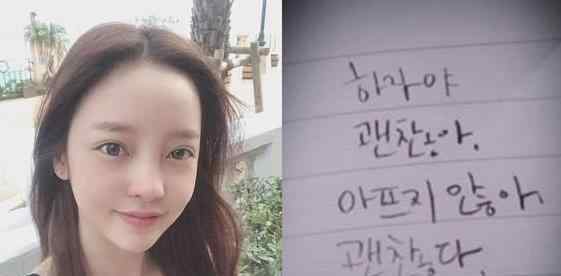 하라야
괜찮아.
아프지 않아.
괜찮다